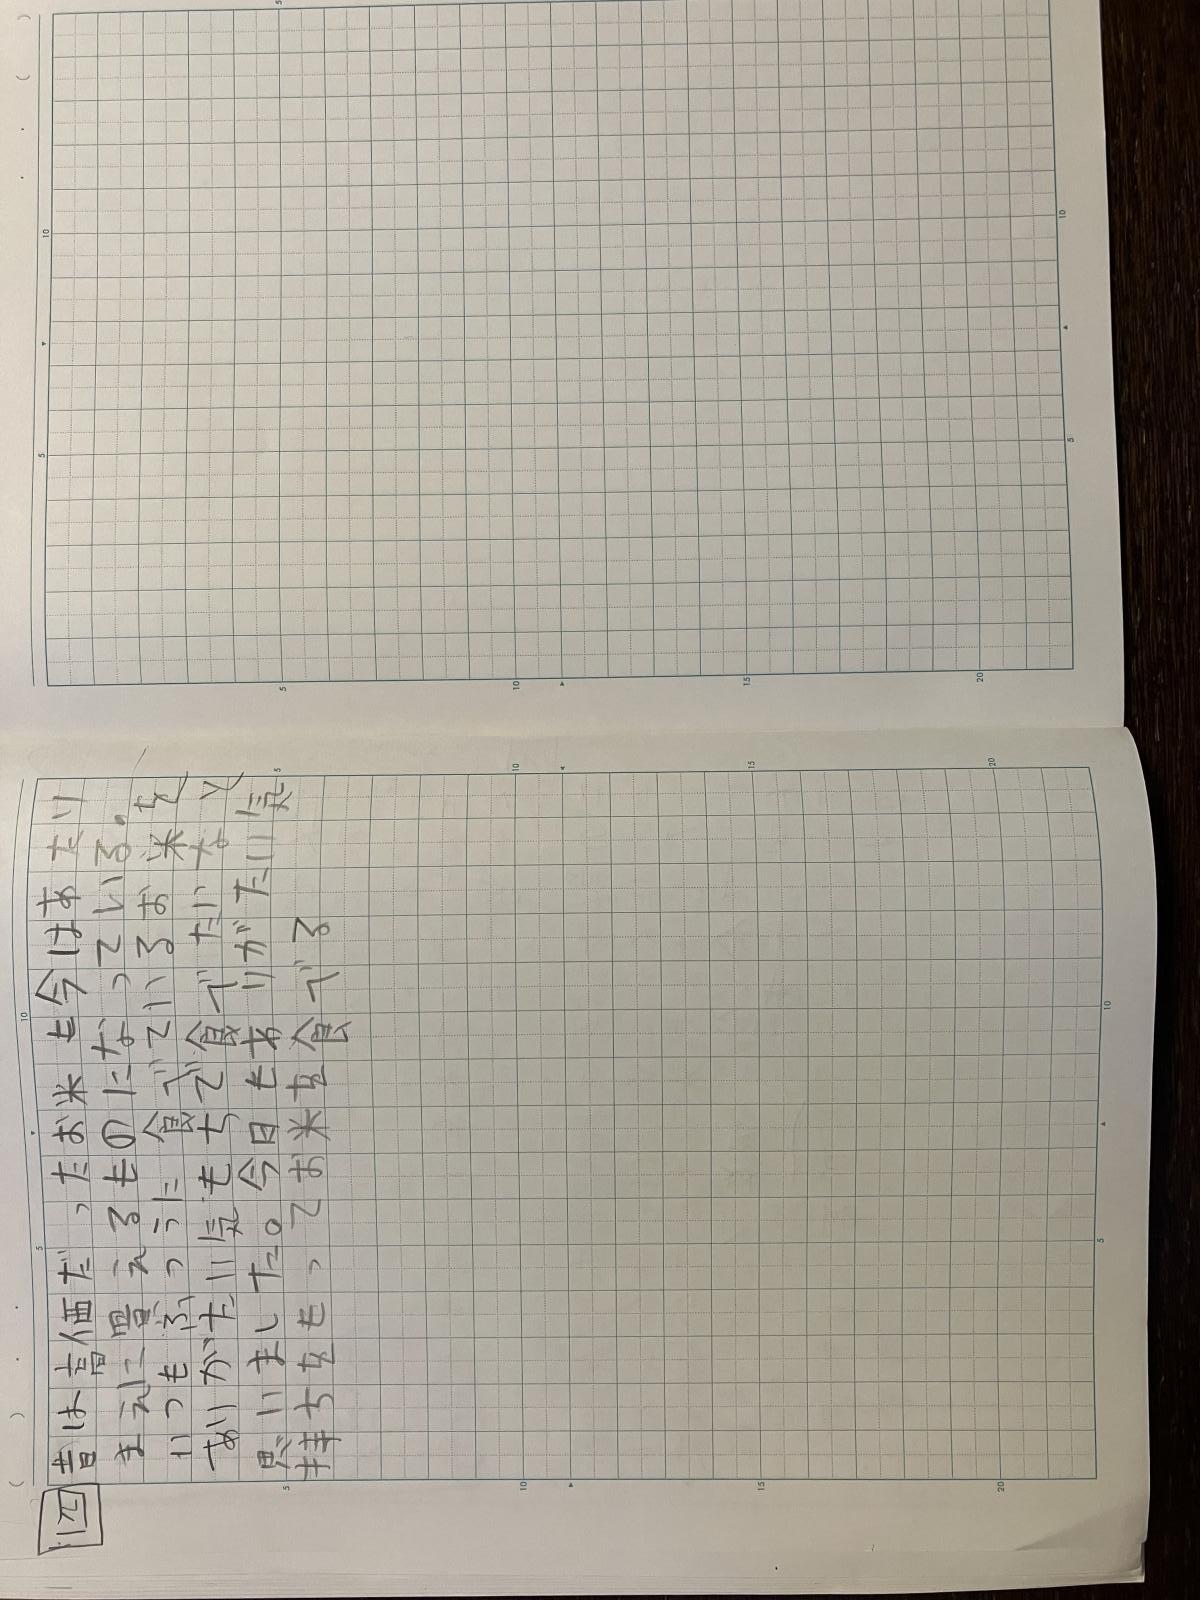 昔は高価だったお米も今はあたり
まえに買えるものになっている。
いつもふつうに食べているお米を
ありがたい気もちで食べたいなと
思いました。今日もありがたい気
持ちをもってお米を食べる